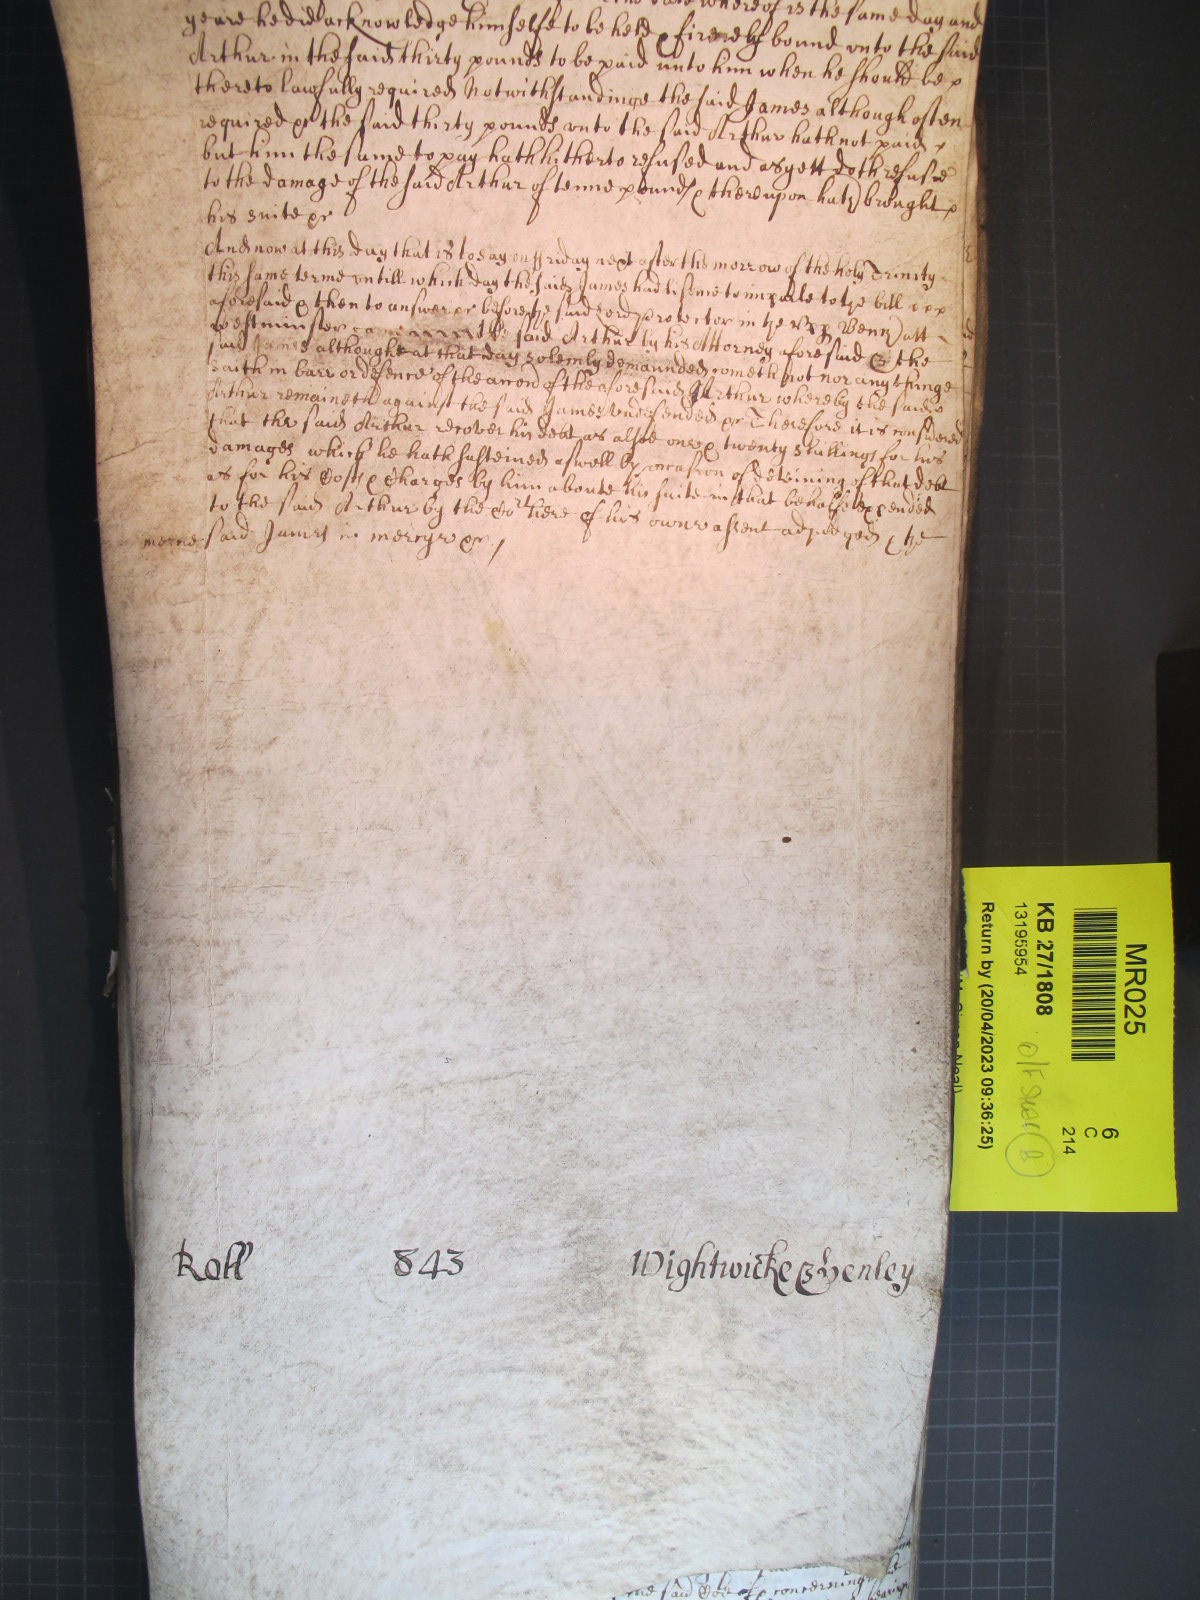 the date whereof is the same day and
yeare he did acknowledge himselfe to be held & firmely bound unto the said
Arthur in the said thirty pounds to be paid unto him when he should be
thereto lawfully required Notwithstandinge the said James although often
required &c the said thirty pounds unto the said Arthur hath not paid
but him the same to pay hath hitherto refused and as yett doth refuse
to the damage of the said Arthur of tenne pounds & thereupon hath brought
his suite &c
And now at this day that is to say on ffriday next after the morrow of the holy Trinity
this same terme untill which day the said James had lisence to imparle to the bill
aforesaid & then to answer &c before the said Lord protector in the upp Bench att
Westminster came the said Arthur by his Attorney aforesaid & the
said James although at that day solemly demaunded cometh not nor any thinge
saith in barr or defence of the accon of the aforesaid Arthur whereby the said
Arthur remaineth against the said James undefended &c Therefore it is considered
that the said Arthur recover his debt as alsoe one & twenty shillings for his
damages which he hath susteined aswell by occasion of detaining of that debt
as for his Costs & Charges by him aboute his suite in that behalfe expended
to the said Arthur by the Co:rt here of his owne assent adjudged & the
mercie said James in mercye &c
Roll 843 Wightwicke & Henley
the said concerning
MR025
KB 27/1808
13195954
Return by (20/04/2023 09:36:25)
6
C
214
B